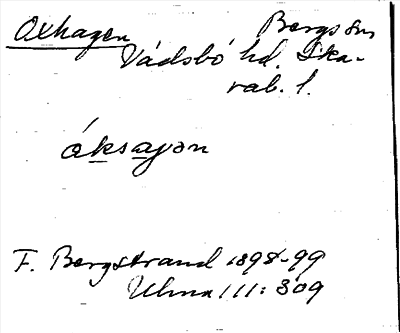 Oxhagen Bergs sn
Vadsbo hd. Ska-
rab. l.
óksaɡən
F. Bergstrand 1898-99
Ulma 111:309